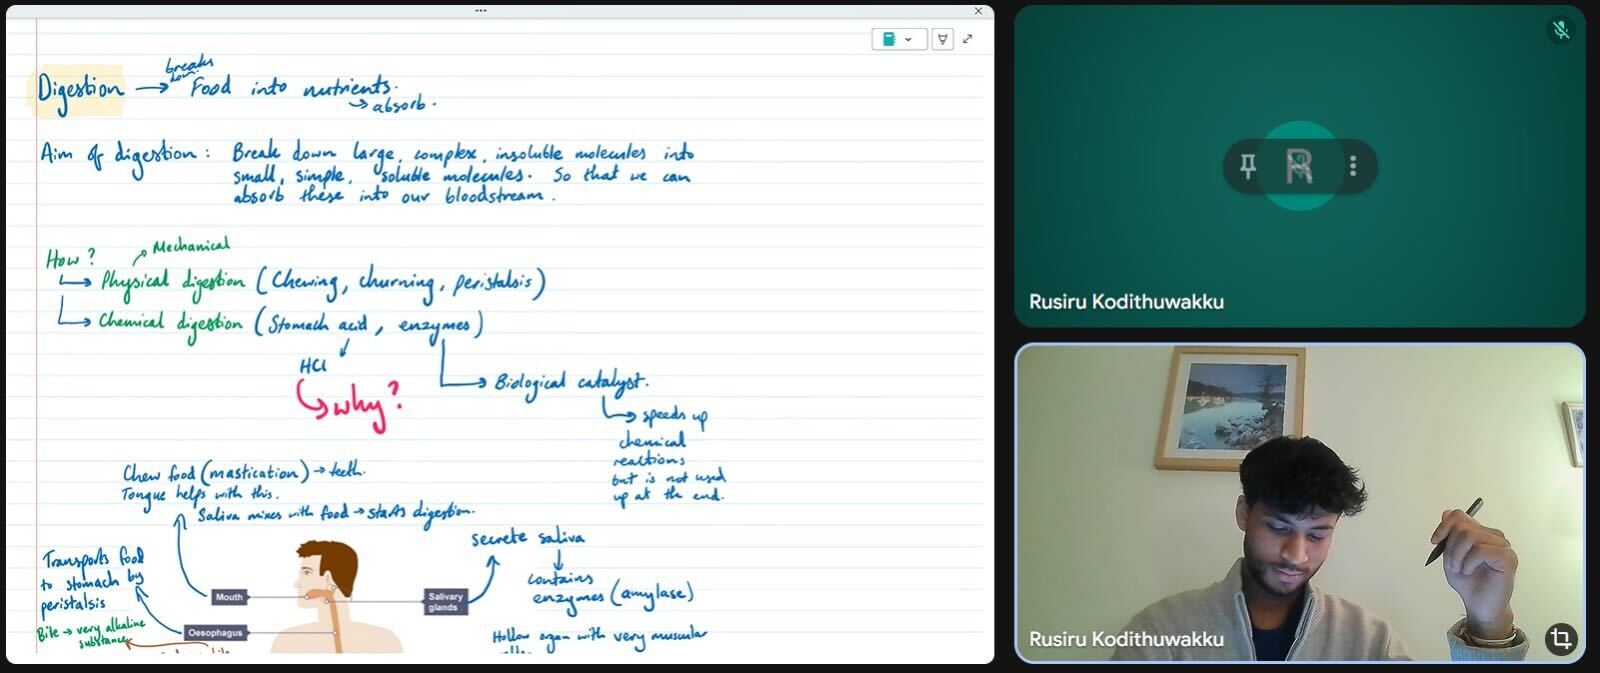 breaks
down
Digestion → Food into nutrients.
→ absorb.
Aim of digestion: Break down large, complex, insoluble molecules into
small, simple, soluble molecules. So that we can
absorb these into our bloodstream.
How?
Mechanical
Physical digestion (Chewing, churning, peristalsis)
Chemical digestion (Stomach acid, enzymes)
HCl
why?
Biological catalyst.
speeds up
chemical
reactions
but is not used
up at the end.
Chew food (mastication) → teeth.
Tongue helps with this.
Saliva mixes with food → starts digestion.
secrete saliva
contains
enzymes (amylase)
Transports food
to stomach by
peristalsis
Mouth
Salivary
glands
Oesophagus
Bile → very alkaline
substance
Hollow organ with very muscular
R
Rusiru Kodithuwakku
Rusiru Kodithuwakku